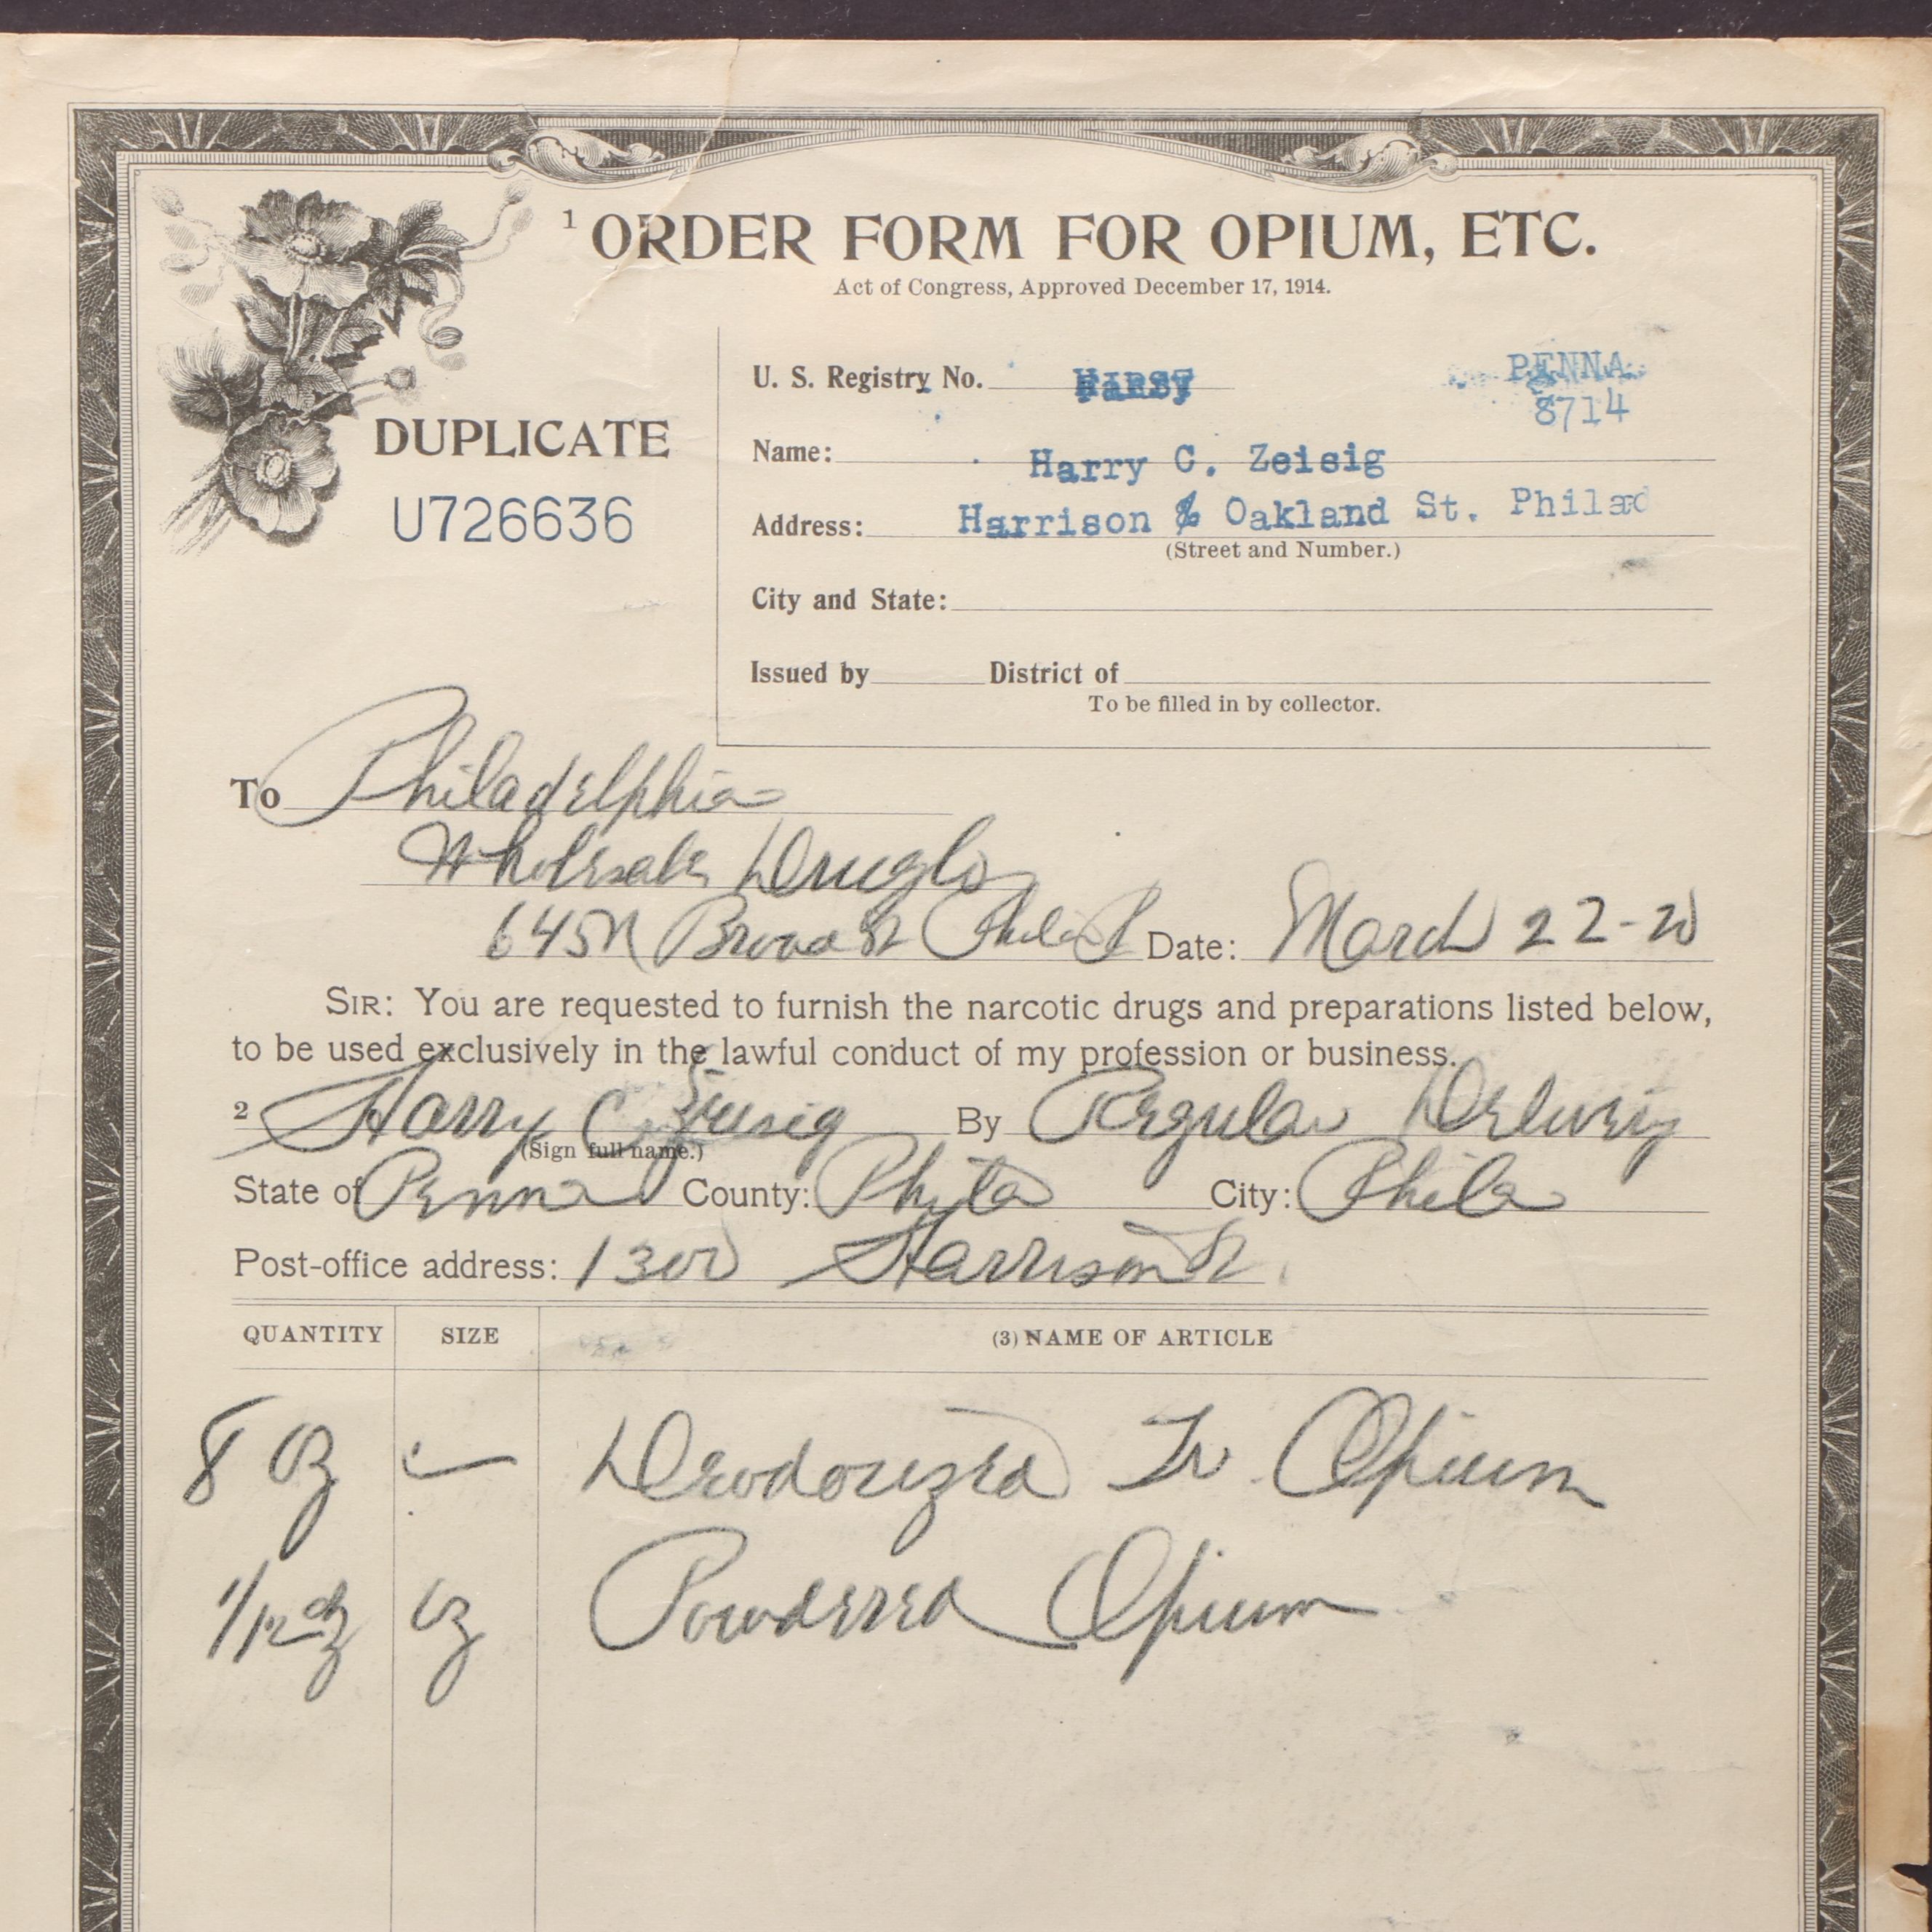 1 ORDER FORM FOR OPIUM, ETC.
Act of Congress, Approved December 17, 1914.
DUPLICATE
U726636
U. S. Registry No.
PENNA.
8714
Name: Harry C. Zeisig
Address: Harrison & Oakland St. Philad
(Street and Number.)
City and State:
Issued by District of
To be filled in by collector.
To Philadelphia
Wholesale Drug Co
645 N Broad St Phila Date: March 22-20
SIR: You are requested to furnish the narcotic drugs and preparations listed below,
to be used exclusively in the lawful conduct of my profession or business.
2 Harry C Zeisig By Regular Delivery
(Sign full name.)
State of Penna County: Phila City: Phila
Post-office address: 1300 Harrison St.
QUANTITY SIZE (3) NAME OF ARTICLE
8 oz — Deodorized Tr Opium
1/12 dz oz Powdered Opium